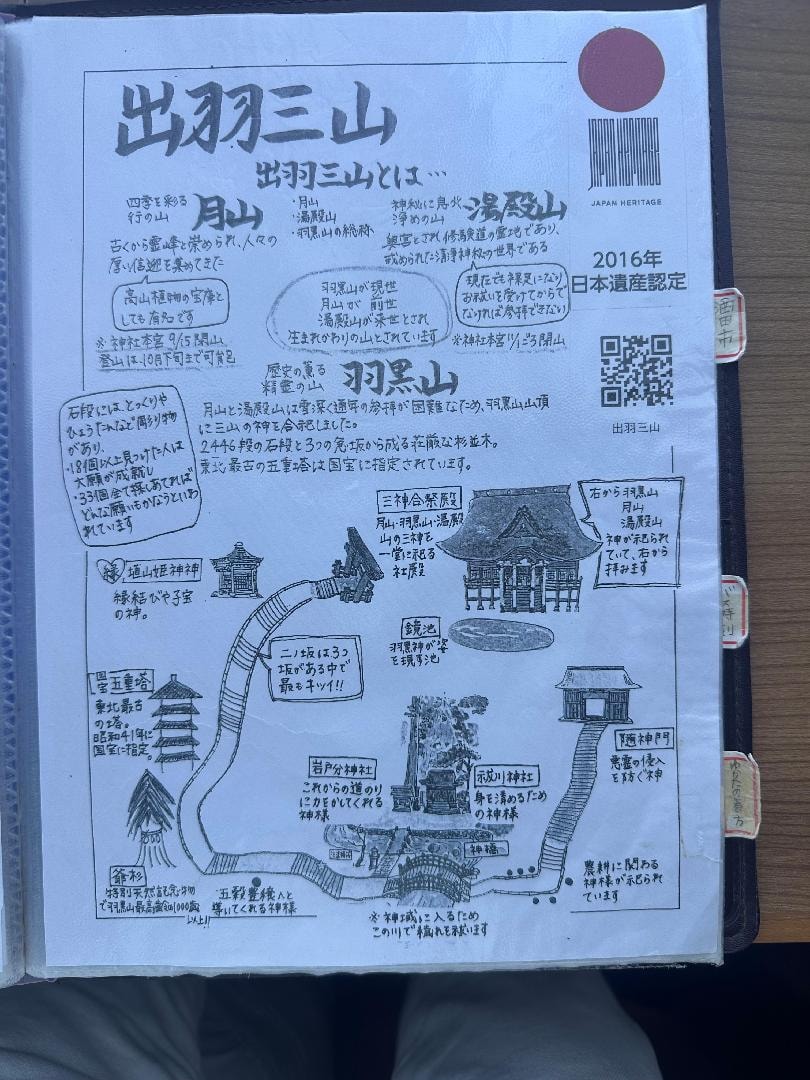 出羽三山
JAPAN HERITAGE
2016年
日本遺産認定
出羽三山
出羽三山とは…
・月山
・湯殿山
・羽黒山の総称
四季を彩る
行の山
月山
古くから霊峰と崇められ、人々の
厚い信迎を集めてきた
高山植物の宝庫と
しても有名です
※神社本宮9/15閉山
登山は、10月下旬まで可能
神秘に息
浄めの山
湯殿山
奥宮とされ修験道の霊地であり、
戒められた清浄神秘の世界である
現在でも裸足になり
お祓いを受けてからで
なければ参拝できない
※神社本宮11/ごろ閉山
羽黒山が現世
月山が前世
湯殿山が来世とされ
生まれかわりの山とされています
歴史の薫る
精霊の山
羽黒山
月山と湯殿山は雪深く通年の参拝が困難なため、羽黒山山頂
に三山の神を合祀しました。
2446段の石段と3つの急坂から成る荘厳な杉並木。
東北最古の五重塔は国宝に指定されています。
石段には、とっくりや
ひょうたんなど彫り物
があり、
・18個以上見つけた人は
大願が成就し
・33個全て探しあてれば
どんな願いもかなうといわ
れています
三神合祭殿
月山・羽黒山・湯殿
山の三神を
一堂に祀る
社殿
右から羽黒山
月山
湯殿山
神が祀られ
ていて、右から
拝みます
縁
埴山姫神神
縁結びや子宝
の神。
鏡池
羽黒神が姿
を現す池
二ノ坂は3つ
坂がある中で
最もキツイ!!
国宝五重塔
東北最古
の塔。
昭和41年に
国宝に指定。
随神門
悪霊の侵入
を防ぐ神
岩戸分神社
これからの道のり
に力をかしてくれる
神様
祓川神社
身を清めるため
の神様
神橋
爺杉
特別天然記念物
で羽黒山最高齢約1000歳
以上!!
五穀豊穣へと
導いてくれる神様
※神域に入るため
この川で穢れを祓います
農耕に関わる
神様が祀られ
ています
酒田市